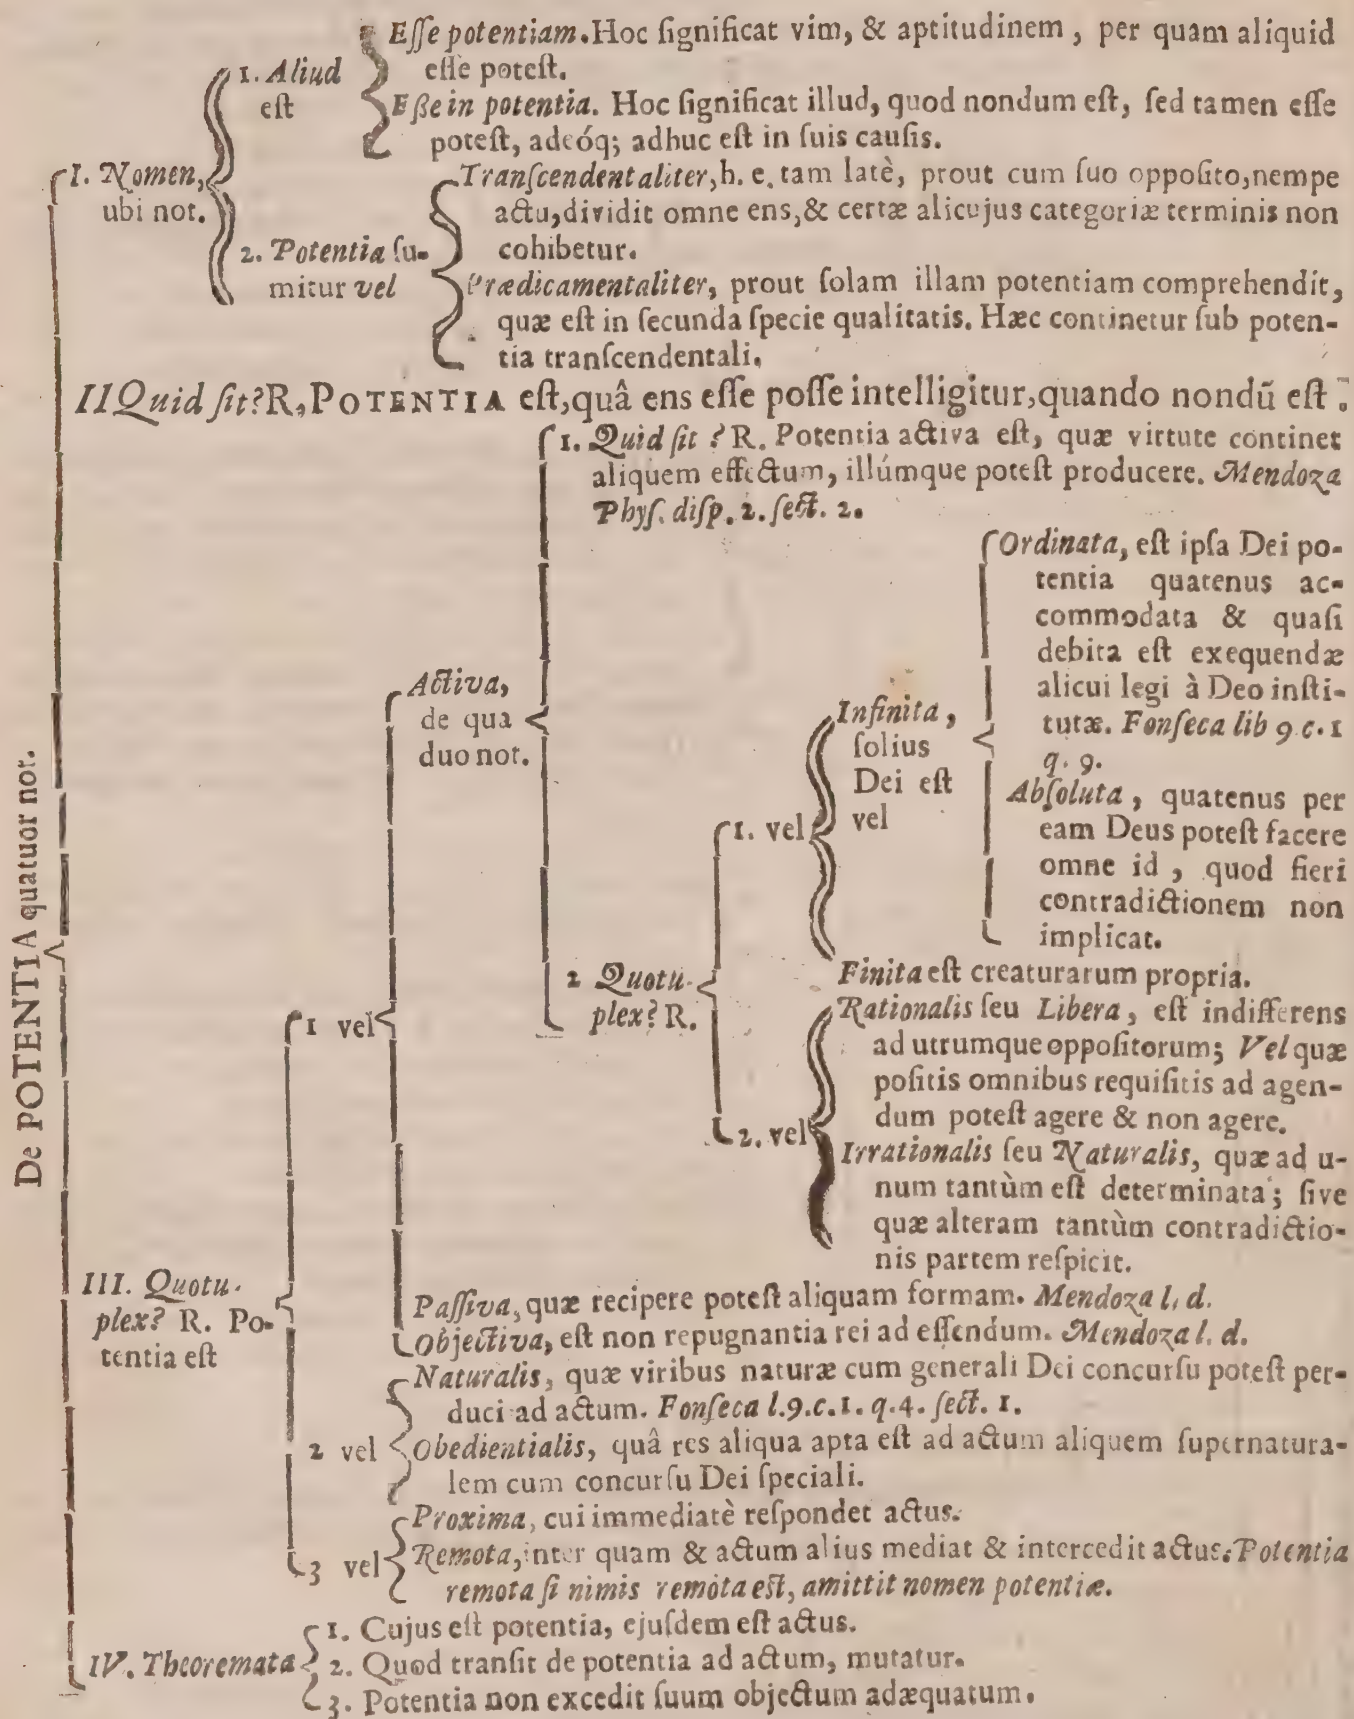 De POTENTIA quatuor not.
I. Nomen,
ubi not.
1. Aliud
est
Eſſe potentiam. Hoc ſignificat vim, & aptitudinem, per quam aliquid
eſſe poteſt.
Eße in potentia. Hoc ſignificat illud, quod nondum eſt, ſed tamen eſſe
poteſt, adeóq; adhuc eſt in ſuis cauſis.
2. Potentia ſu-
mitur vel
Tranſcendentaliter, h. e. tam latè, prout cum ſuo oppoſito, nempe
actu, dividit omne ens, & certæ alicujus categoriæ terminis non
cohibetur.
Prædicamentaliter, prout ſolam illam potentiam comprehendit,
quæ eſt in ſecunda ſpecie qualitatis. Hæc continetur ſub poten-
tia tranſcendentali.
II Quid ſit? R, POTENTIA eſt, quâ ens eſſe poſſe intelligitur, quando nondū eſt.
III. Quotu-
plex? R. Po-
tentia eſt
1 vel
Activa,
de qua
duo not.
1. Quid ſit? R. Potentia activa eſt, quæ virtute continet
aliquem effectum, illúmque poteſt producere. Mendoza
Phyſ. diſp. 2. ſect. 2.
2 Quotu-
plex? R.
1. vel
Infinita,
ſolius
Dei eſt
vel
Ordinata, eſt ipſa Dei po-
tentia quatenus ac-
commodata & quaſi
debita eſt exequendæ
alicui legi à Deo inſti-
tutæ. Fonſeca lib 9 c. 1
q. 9.
Abſoluta, quatenus per
eam Deus poteſt facere
omne id, quod fieri
contradictionem non
implicat.
Finita eſt creaturarum propria.
2. vel
Rationalis ſeu Libera, eſt indifferens
ad utrumque oppoſitorum; Vel quæ
poſitis omnibus requiſitis ad agen-
dum poteſt agere & non agere.
Irrationalis ſeu Naturalis, quæ ad u-
num tantùm eſt determinata; ſive
quæ alteram tantùm contradictio-
nis partem reſpicit.
Paſſiva, quæ recipere poteſt aliquam formam. Mendoza l. d.
Objectiva, eſt non repugnantia rei ad eſſendum. Mendoza l. d.
2 vel
Naturalis, quæ viribus naturæ cum generali Dei concurſu poteſt per-
duci ad actum. Fonſeca l. 9. c. 1. q. 4. ſect. 1.
Obedientialis, quâ res aliqua apta eſt ad actum aliquem ſupernatura-
lem cum concurſu Dei ſpeciali.
3 vel
Proxima, cui immediatè reſpondet actus.
Remota, inter quam & actum alius mediat & intercedit actus. Potentia
remota ſi nimis remota eſt, amittit nomen potentiæ.
IV. Theoremata
1. Cujus eſt potentia, ejuſdem eſt actus.
2. Quod tranſit de potentia ad actum, mutatur.
3. Potentia non excedit ſuum objectum adæquatum.